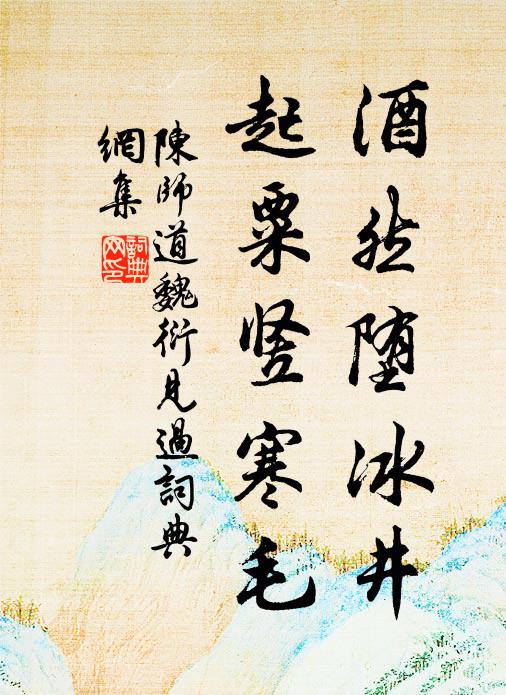 酒然堕冰井
起粟竖寒毛
陳師道魏衍見過詞典
網集
詞典
网印